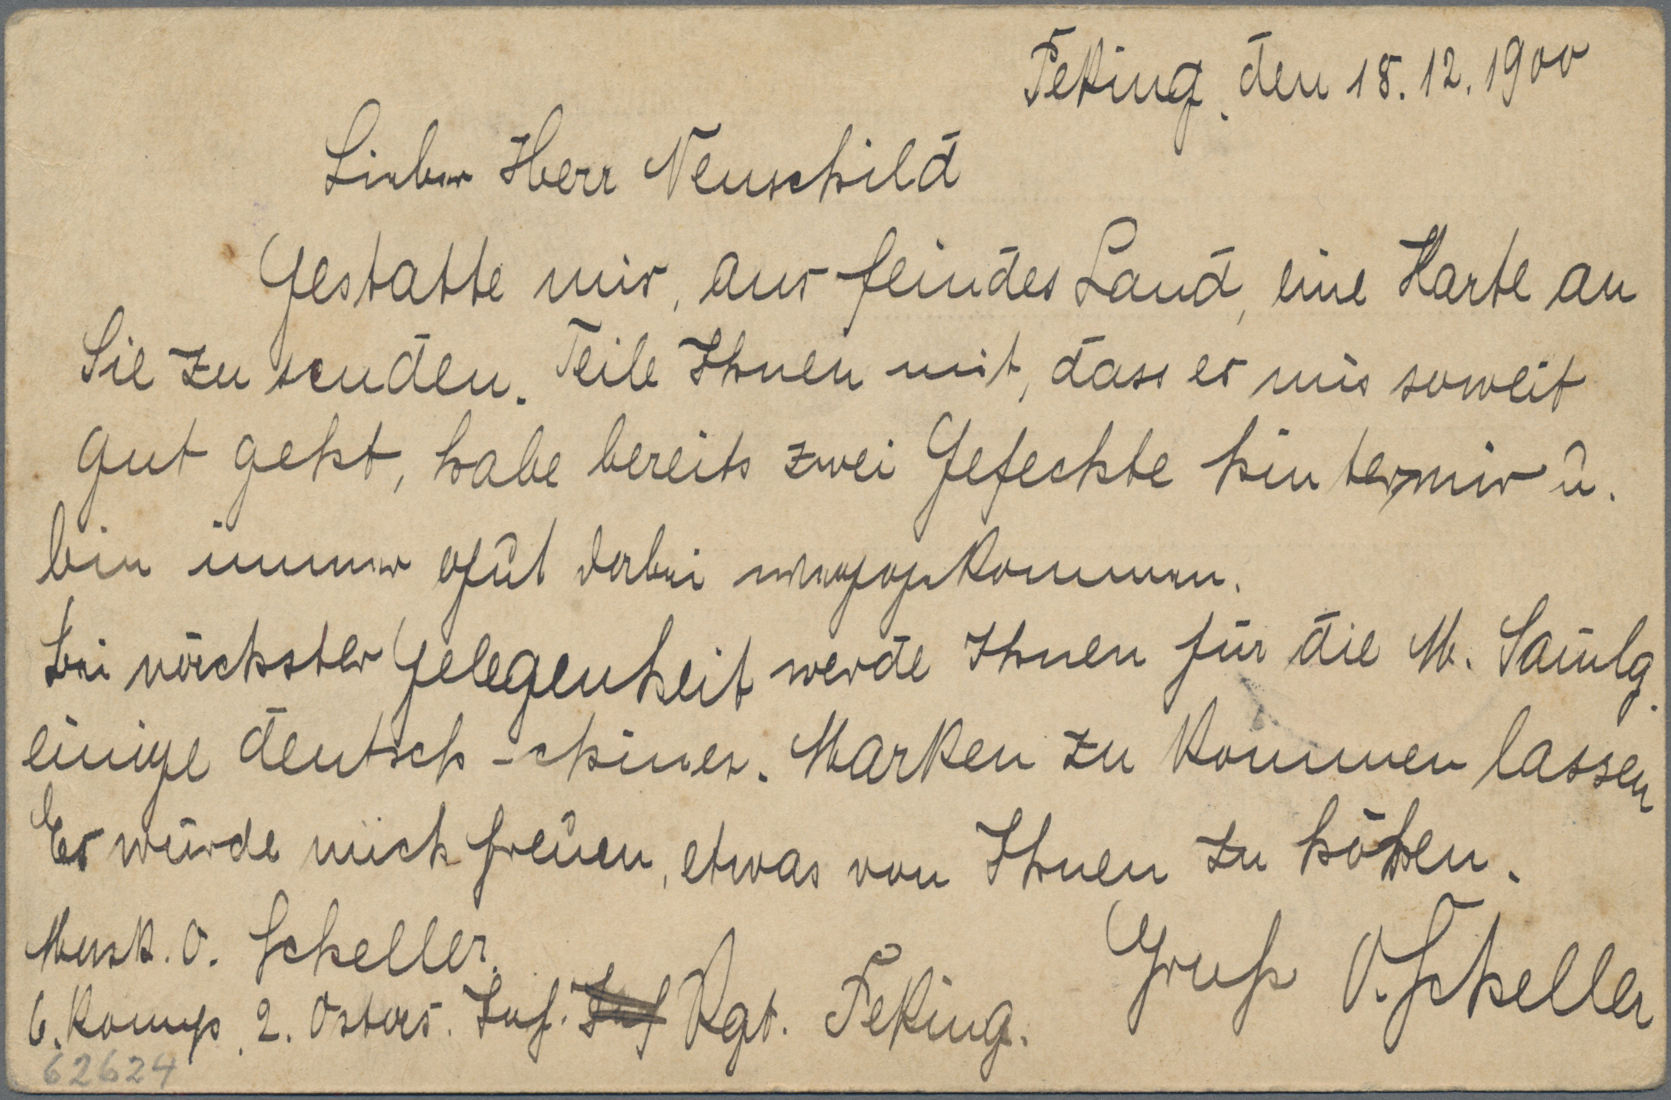 Peking, den 18.12.1900
Lieber Herr Neuschild
Gestatte mir, aus feindes Land, eine Karte an
Sie zu senden. Teile Ihnen mit, dass es mir soweit
gut geht, habe bereits zwei Gefechte hinter mir u.
bin immer gut dabei weggekommen.
Bei nächster Gelegenheit werde Ihnen für die M. Samlg.
einige deutsch-chines. Marken zu kommen lassen
Es würde mich freuen, etwas von Ihnen zu hören.
Gruß O. Scheller
Musk. O. Scheller.
6. Komp. 2. Ostas. Inf. Rgt. Peking.
62624